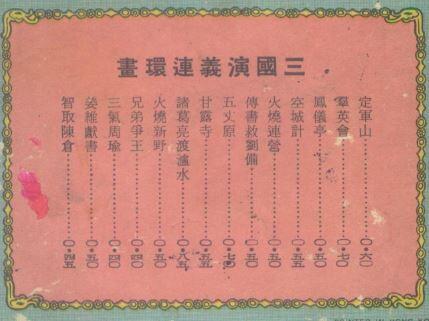 三國演義連環畫
定軍山……〇·六〇
羣英會……〇·七〇
鳳儀亭……〇·五〇
空城計……〇·五五
火燒連營……〇·五〇
傳書救劉備……〇·五〇
五丈原……〇·七〇
甘露寺……〇·五五
諸葛亮渡瀘水……〇·八五
火燒新野……〇·五〇
兄弟爭王……〇·四〇
三氣周瑜……〇·四〇
姜維獻書……〇·五〇
智取陳倉……〇·四五